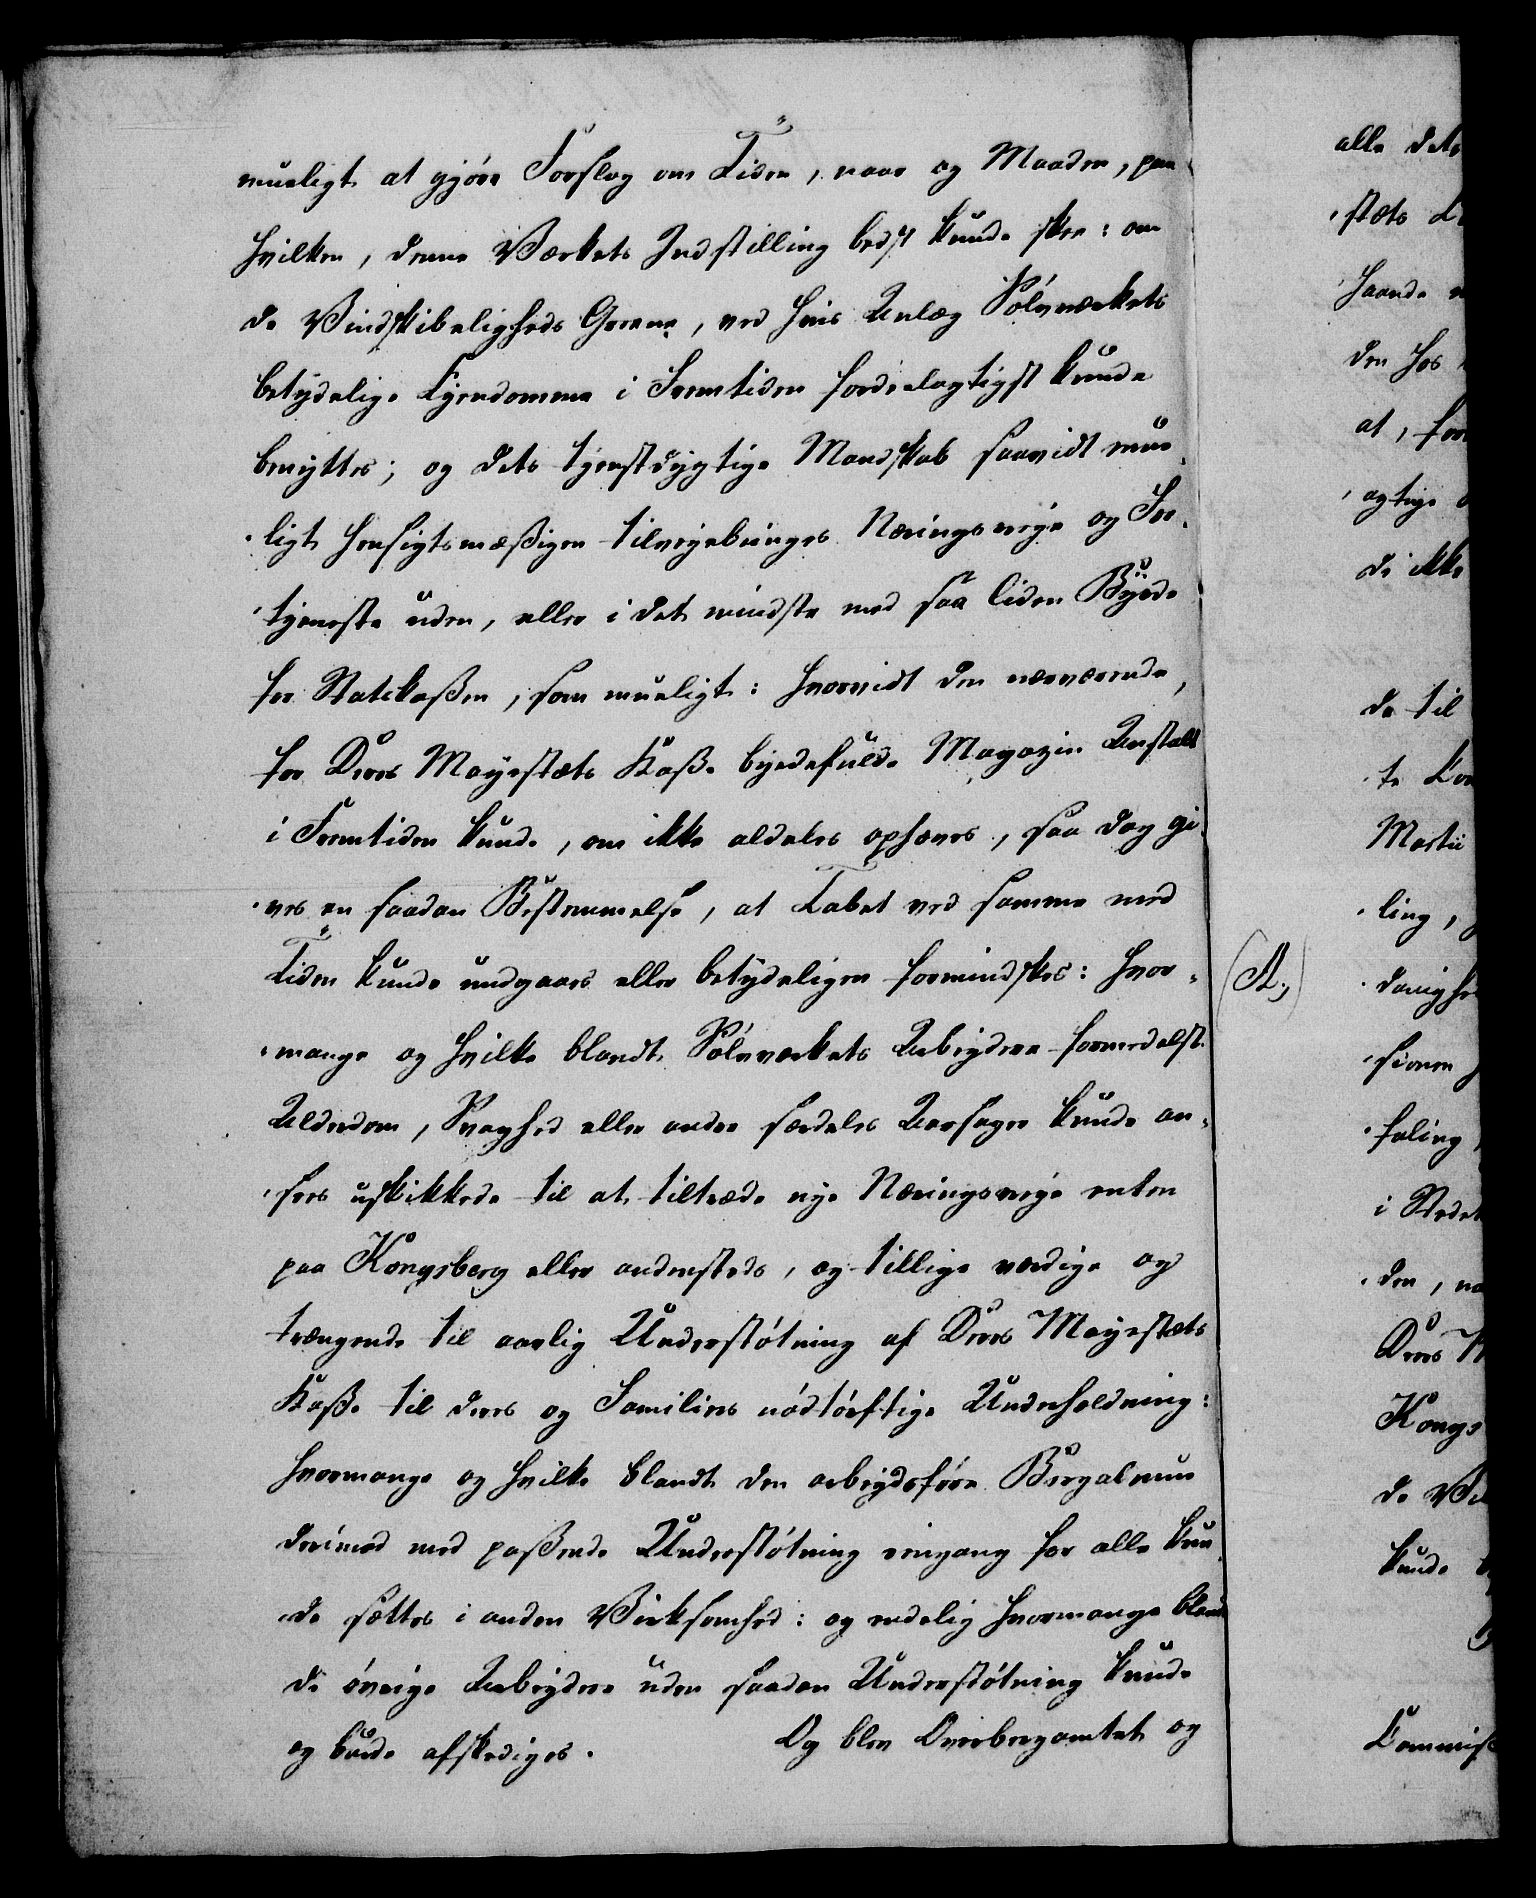 mueligt at gjøre Forslag om Tiden, naar og Maaden, paa
hvilken, denne Værkets Indstilling bedst kunde skee: om
de Vindskibeligheds Grene, ved hvis Anlæg Sølvværkets
betydelige Eyendomme i Fremtiden fordeelagtigst kunde
benyttes; og dets tjenstdygtige Mandskab saavidt mue
ligt hensigtsmæßigen tilvejebringes Næringsveje og For¬
tjeneste uden, eller i det mindste med saa liden Byrde
for Statskaßen, som mueligt: hvorvidt den nærværende,
for Deres Majestæts Kaße byrdefulde Magazin Anstalt
i Fremtiden kunde, om ikke aldeles ophæves, saa dog gi
ves en saadan Bestemmelse, at Tabet ved samme med
Tiden kunde undgaaes eller betydeligen formindskes: hvor¬
mange og hvilke blandt Sølvværkets Arbeydere formedelst
Alderdom, Svaghed eller andre særdeles Aarsager kunde an¬
sees uskikkede til at tiltræde nye Næringsveje enten
paa Kongsberg eller andensteds, og tillige værdige og
trængende til aarlig Understøtning af Deres Majestæts
Kaße til deres og Familiens nødtørftige Underholdning:
hvormange og hvilke blandt den arbeydsføre Bergalmue
derimod med paßende Understøtning eengang for alle kun
de sættes i anden Virksomhed: og endelig hvormange blandt
de øvrige Arbeydere uden saadan Understøtning kunde
og burde afskediges. Og blev Overbergamtet og
(A.)
alle dets
stæts
haande
den hos
at, for
agtige
de ikke
de til
te
Martii
ling,
sionen
faling
i Stedet
den, na
Deres M
Kongs
de
kunde
Commiss